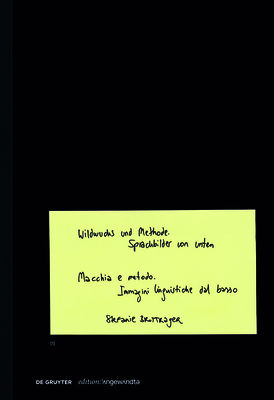 Wildwuchs und Methode.
Sprachbilder von unten
Macchia e metodo.
Immagini linguistiche dal basso
Stefanie
DE GRUYTER edition:'Angewandte